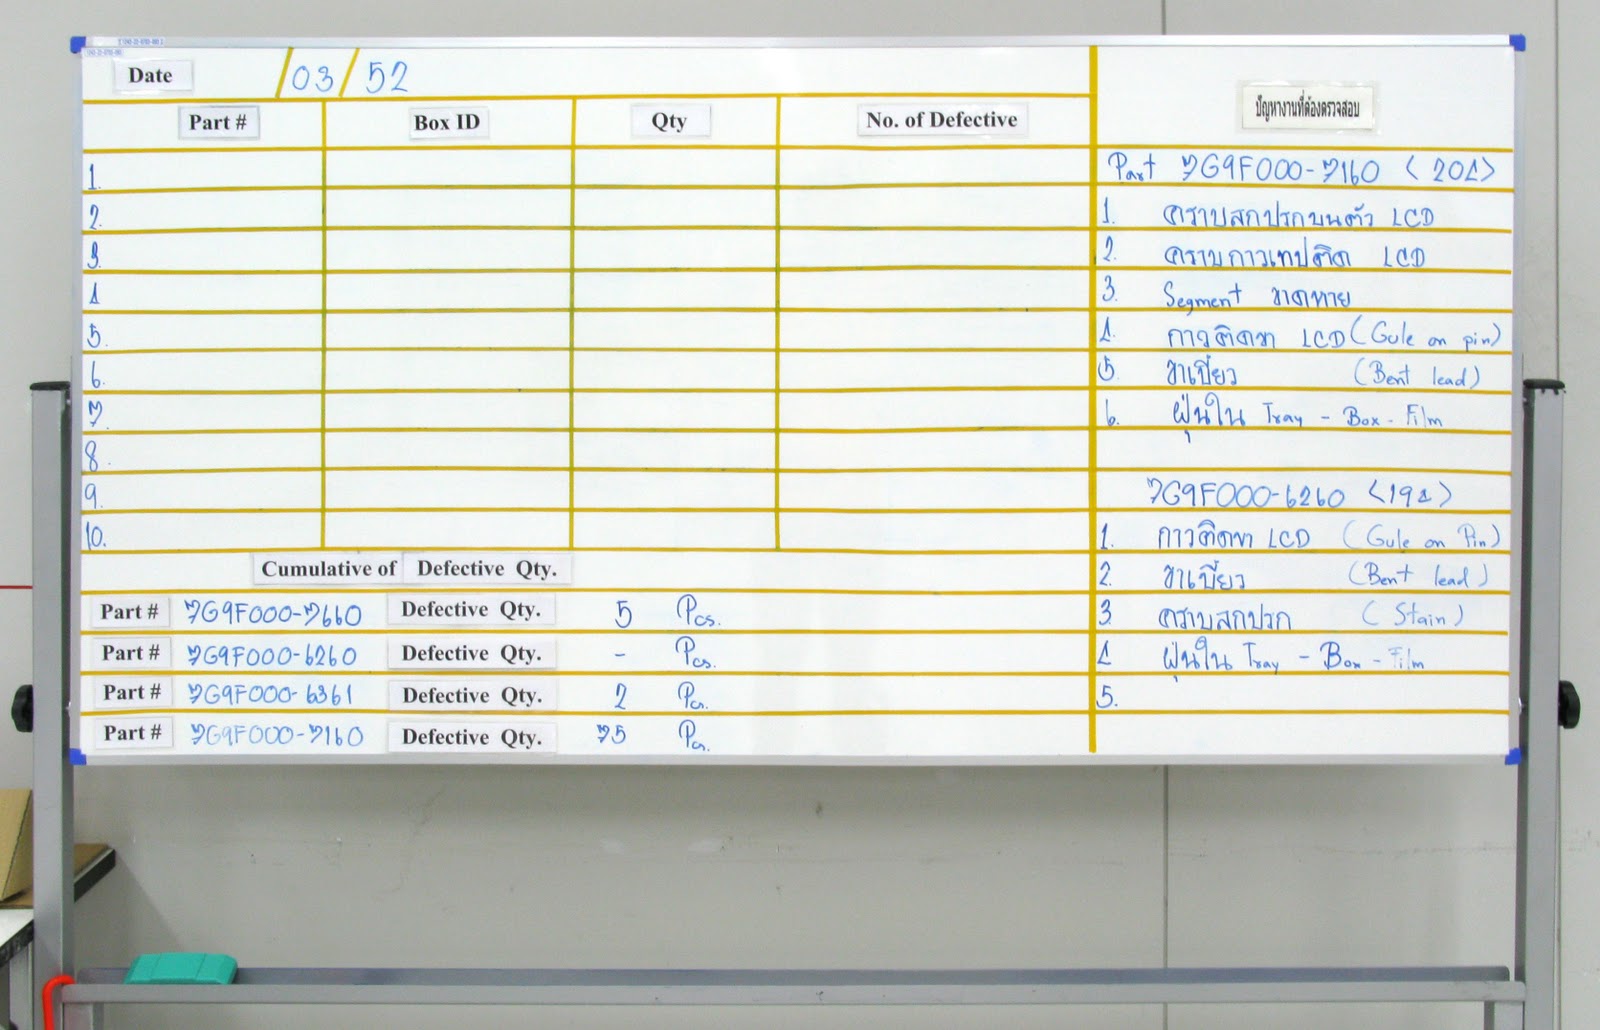 Date /03/52
Part # Box ID Qty No. of Defective
1.
2.
3.
4
5.
6.
7.
8.
9.
10.
Cumulative of Defective Qty.
Part # 7G9F000-7660 Defective Qty. 5 Pcs.
Part # 7G9F000-6260 Defective Qty. - Pcs.
Part # 7G9F000-6361 Defective Qty. 2 Pcs.
Part # 7G9F000-7160 Defective Qty. 75 Pcs.
ปัญหางานที่ต้องตรวจสอบ
Part 7G9F000-7160 <204>
1. คราบสกปรกบนตัว LCD
2. คราบกาวเทปติด LCD
3. Segment ขาดหาย
4. กาวติดขา LCD (Gule on pin)
5 ขาเบี้ยว (Bent lead)
6. ฝุ่นใน Tray - Box - Film
7G9F000-6260 <194>
1. กาวติดขา LCD (Gule on Pin)
2. ขาเบี้ยว (Bent lead)
3. คราบสกปรก (Stain)
4 ฝุ่นใน Tray - Box - Film
5.